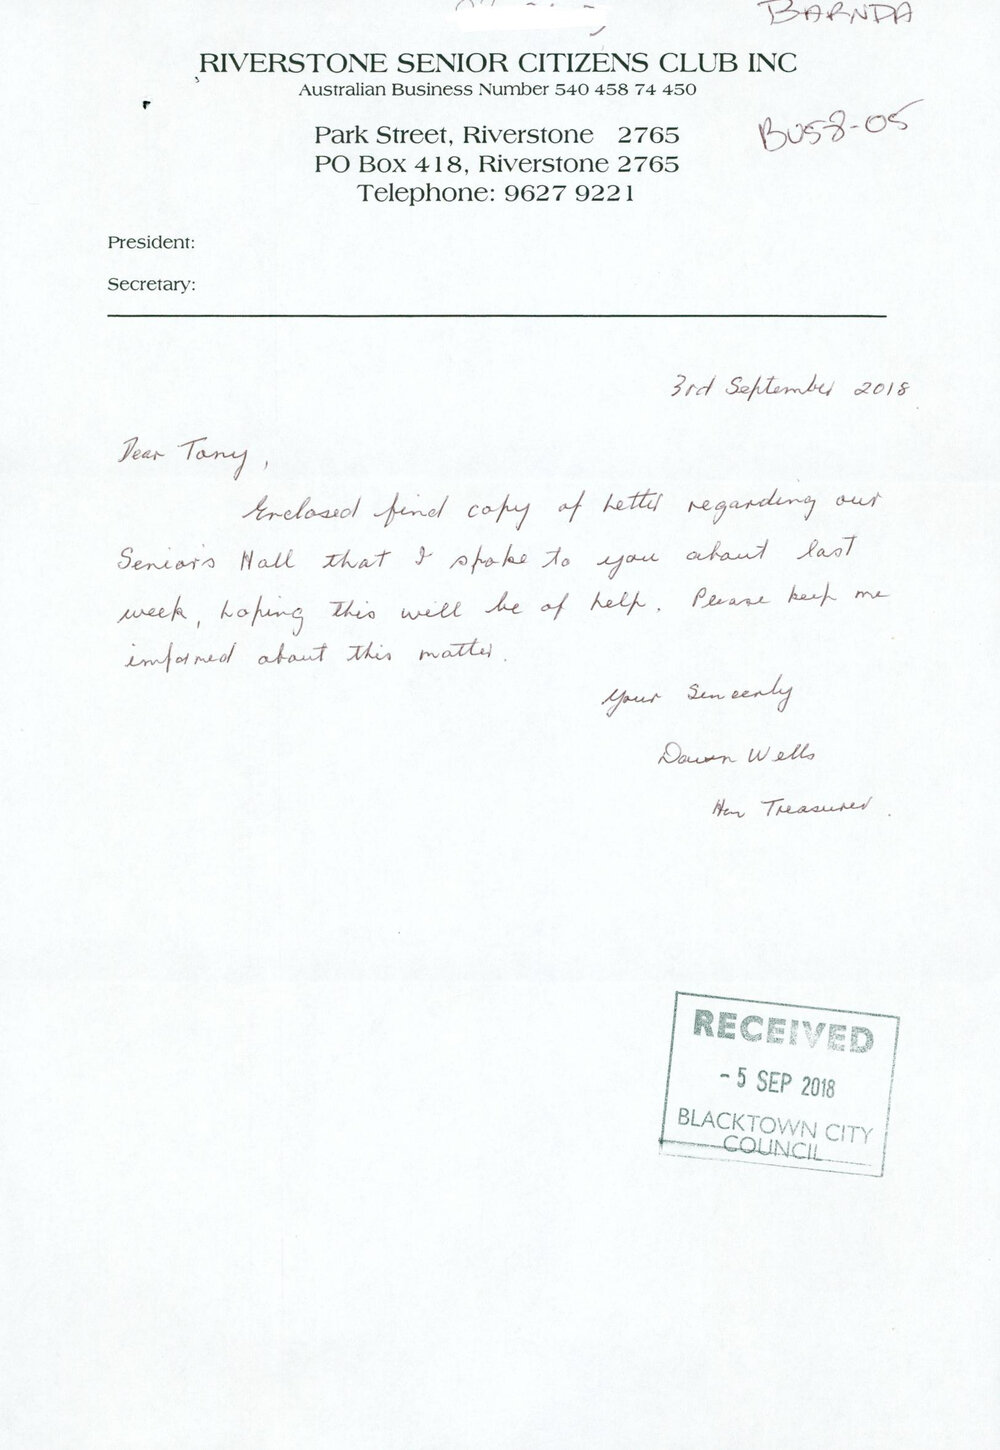 BARNDA
RIVERSTONE SENIOR CITIZENS CLUB INC
Australian Business Number 540 458 74 450
BUS8-05
Park Street, Riverstone 2765
PO Box 418, Riverstone 2765
Telephone: 9627 9221
President:
Secretary:
3rd September 2018
Dear Tony,
Enclosed find copy of letter regarding our
Senior's Hall that I spoke to you about last
week, hoping this will be of help. Please keep me
informed about this matter.
Your Sincerly
Dawn Wells
Hon Treasurer.
RECEIVED
- 5 SEP 2018
BLACKTOWN CITY
COUNCIL